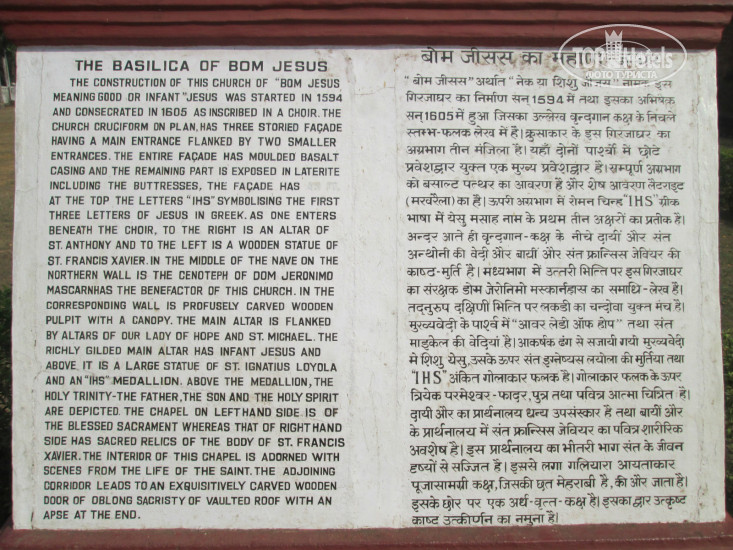 THE BASILICA OF BOM JESUS
THE CONSTRUCTION OF THIS CHURCH OF "BOM JESUS
MEANING GOOD OR INFANT "JESUS WAS STARTED IN 1594
AND CONSECRATED IN 1605 AS INSCRIBED IN A CHOIR. THE
CHURCH CRUCIFORM ON PLAN, HAS THREE STORIED FAÇADE
HAVING A MAIN ENTRANCE FLANKED BY TWO SMALLER
ENTRANCES. THE ENTIRE FAÇADE HAS MOULDED BASALT
CASING AND THE REMAINING PART IS EXPOSED IN LATERITE
INCLUDING THE BUTTRESSES, THE FAÇADE HAS
AT THE TOP THE LETTERS "IHS" SYMBOLISING THE FIRST
THREE LETTERS OF JESUS IN GREEK. AS ONE ENTERS
BENEATH THE CHOIR, TO THE RIGHT IS AN ALTAR OF
ST. ANTHONY AND TO THE LEFT IS A WOODEN STATUE OF
ST. FRANCIS XAVIER. IN THE MIDDLE OF THE NAVE ON THE
NORTHERN WALL IS THE CENOTEPH OF DOM JERONIMO
MASCARNHAS THE BENEFACTOR OF THIS CHURCH. IN THE
CORRESPONDING WALL IS PROFUSELY CARVED WOODEN
PULPIT WITH A CANOPY. THE MAIN ALTAR IS FLANKED
BY ALTARS OF OUR LADY OF HOPE AND ST. MICHAEL. THE
RICHLY GILDED MAIN ALTAR HAS INFANT JESUS AND
ABOVE IT IS A LARGE STATUE OF ST. IGNATIUS LOYOLA
AND AN "IHS" MEDALLION. ABOVE THE MEDALLION, THE
HOLY TRINITY-THE FATHER, THE SON AND THE HOLY SPIRIT
ARE DEPICTED. THE CHAPEL ON LEFT HAND SIDE IS OF
THE BLESSED SACRAMENT WHEREAS THAT OF RIGHT HAND
SIDE HAS SACRED RELICS OF THE BODY OF ST. FRANCIS
XAVIER. THE INTERIOR OF THIS CHAPEL IS ADORNED WITH
SCENES FROM THE LIFE OF THE SAINT. THE ADJOINING
CORRIDOR LEADS TO AN EXQUISITIVELY CARVED WOODEN
DOOR OF OBLONG SACRISTY OF VAULTED ROOF WITH AN
APSE AT THE END.
बोम जीसस का
"बोम जीसस" अर्थात "नेक या शिशु जीसस" नामक इस
गिरजाघर का निर्माण सन् 1594 में तथा इसका अभिषेक
सन् 1605 में हुआ जिसका उल्लेख वृन्दगान कक्ष के निचले
स्तम्भ-फलक लेख में है। क्रुसाकार के इस गिरजाघर का
अग्रभाग तीन मंजिला है। यहाँ दोनों पार्श्वों में छोटे
प्रवेशद्वार युक्त एक मुख्य प्रवेशद्वार है। सम्पूर्ण अग्रभाग
को बसाल्ट पत्थर का आवरण है और शेष आवरण लैटराइट
(मरवरैला) का है। ऊपरी अग्रभाग में रोमन चिन्ह "IHS" ग्रीक
भाषा में येसु मसाह नाम के प्रथम तीन अक्षरों का प्रतीक है।
अन्दर आते ही वृन्दगान-कक्ष के नीचे दायीं और संत
अन्थोनी की वेदी और बायीं और संत फ्रान्सिस जेवियर की
काष्ठ-मुर्ति है। मध्यभाग में उत्तरी भित्ति पर इस गिरजाघर
का संरक्षक डोम जेरोनिमो मस्कार्नहास का समाधि-लेख है।
तदनुरुप दक्षिणी भित्ति पर लकडी का चन्दोवा युक्त मंच है।
मुख्यवेदी के पार्श्व में "आवर लेडी ऑफ होप" तथा संत
माइकेल की वेदियां है। आकर्षक ढंग से सजायी गयी मुख्यवेदी
में शिशु येसु, उसके ऊपर संत इग्नेष्यस लयोला की मुर्तिया तथा
"IHS" अंकित गोलाकार फलक है। गोलाकार फलक के ऊपर
त्रियेक परमेश्वर-फादर, पुत्र तथा पवित्र आत्मा चित्रित है।
दायी और का प्रार्थनालय धन्य उपसंस्कार है तथा बायीं और
के प्रार्थनालय में संत फ्रान्सिस जेवियर का पवित्र शारीरिक
अवशेष है। इस प्रार्थनालय का भीतरी भाग संत के जीवन
दृष्यों से सज्जित है। इससे लगा गलियारा आयताकार
पूजासामग्री कक्ष, जिसकी छत मेहराबी है, की और जाता है।
इसके छोर पर एक अर्ध-वृत्त-कक्ष है। इसका द्वार उत्कृष्ट
काष्ट उत्कीर्णन का नमुना है।
TOPHotels
ФОТО ТУРИСТА